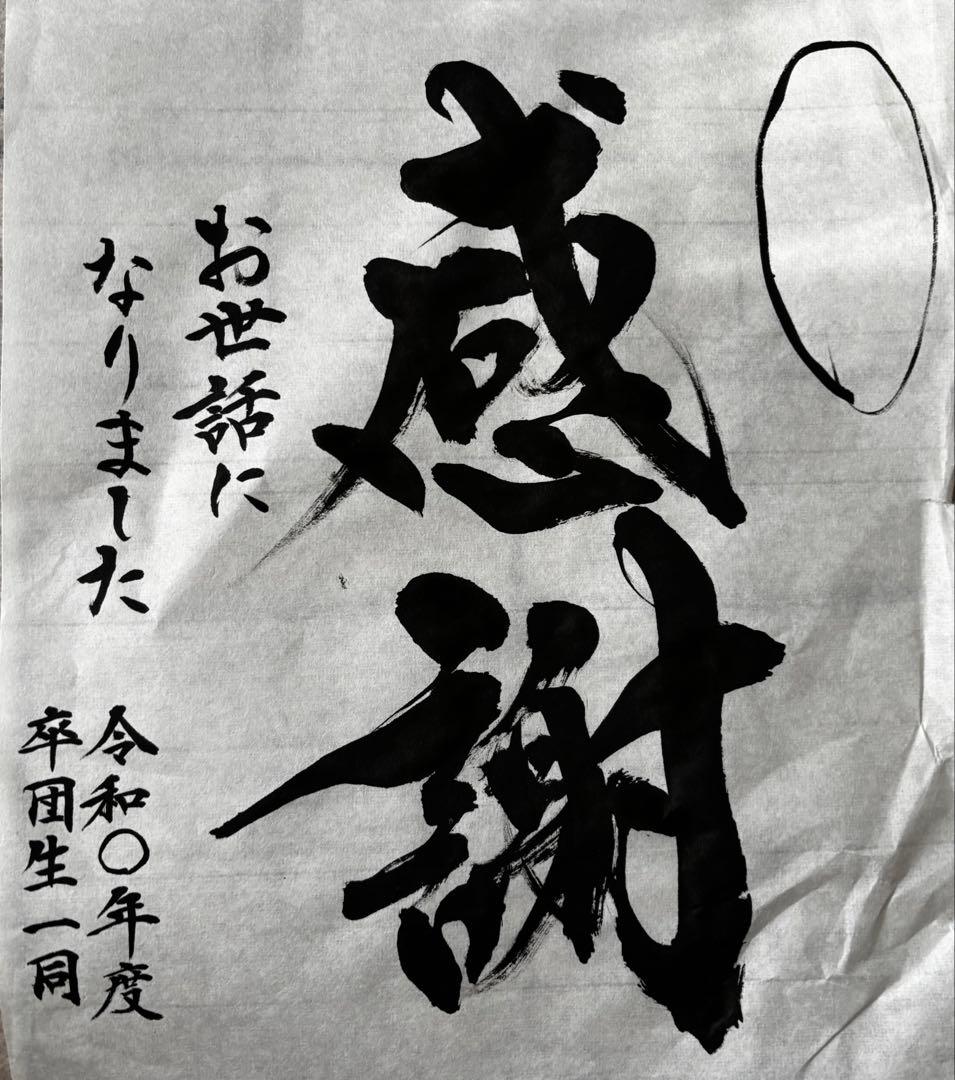 感謝
お世話に
なりました
令和〇年度
卒団生一同